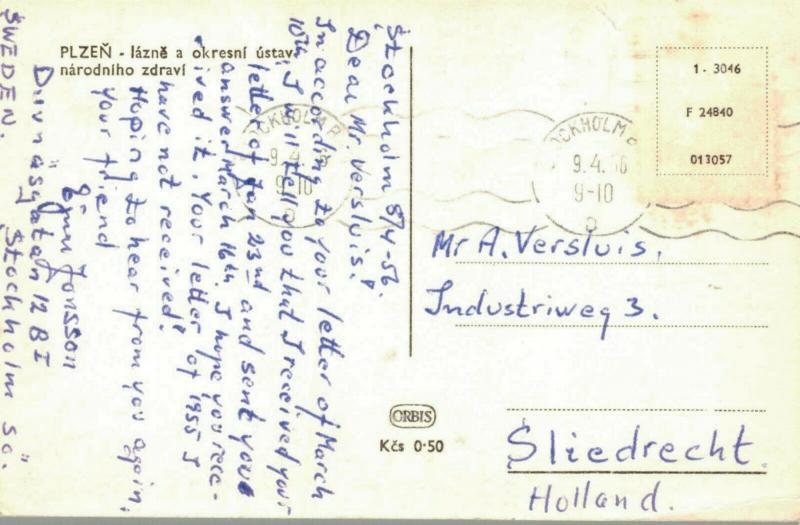 PLZEŇ - lázně a okresní ústav
národního zdraví
Stockholm 8/4-56.
Dear Mr. Versluis!
In according to your letter of March
10th, I will tell you that I received your
letter of Jan 23rd and sent your
answer March 16th. I hope you rece-
ived it. Your letter of 1955 I
have not received!
Hoping to hear from you again,
your friend
Jonsson
Duvnäsgatan 12 B I
Stockholm Sö.
SWEDEN.
OCKHOLM
9.4.
9-10
OCKHOLM
9.4.56
9-10
1 - 3046
F 24840
013057
Mr A. Versluis.
Industriweg 3.
Sliedrecht.
Holland.
ORBIS
Kčs 0·50